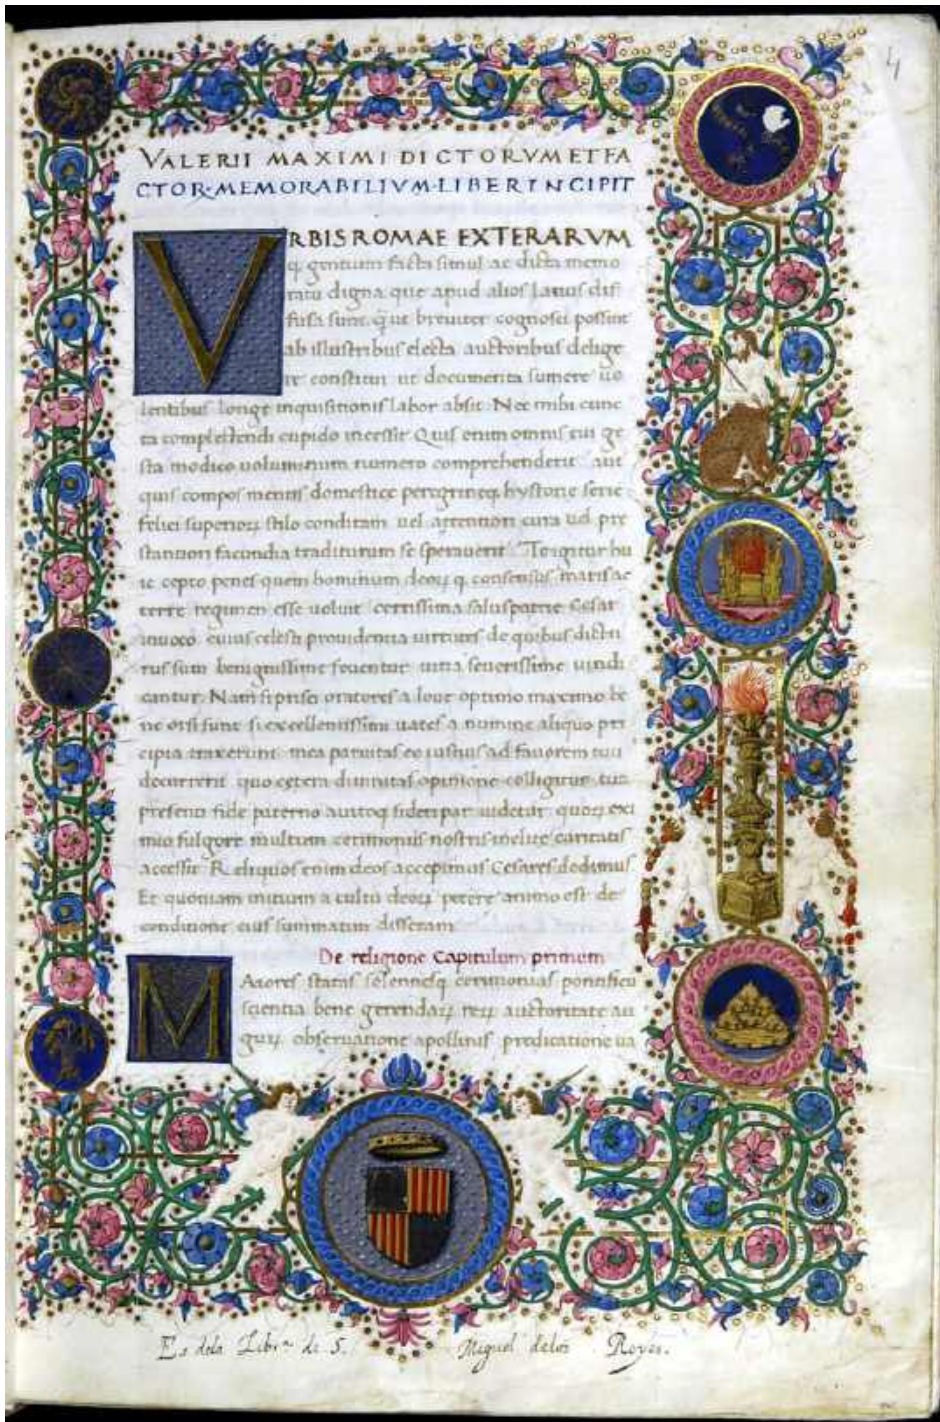 4
VALERII MAXIMI DICTORVM ET FA
CTOR·MEMORABILIVM·LIBER INCIPIT
VRBIS ROMAE EXTERARVM
q gentium facta simul ac dicta memo
ratu digna que apud alios latius dif
fusa sunt q ut breuiter cognosci possint
ab illustribus electa auctoribus delige
re constitui ut documenta sumere uo
lentibus longe inquisitionis labor absit. Nec mihi cunc
ta complectendi cupido incessit Quis enim omnis eui ge
sta modico uoluminum numero comprehenderit aut
quis compos mentis domestice peregrineq hystorie serie
felici superioꝝ stilo conditam uel attentiori cura uel pre
stantiori facundia traditurum se sperauerit Te igitur hu
ic cepto penes quem hominum deoꝝ q consensus maris ac
terre regimen esse uoluit certissima salus patrie Cesar
inuoco cuius celesti prouidentia uirtutes de quibus dictu
rus sum benignissime fouentur uitia seuerissime uindi
cantur. Nam si prisci oratores a Ioue optimo maximo be
ne orsi sunt si excellentissimi uates a numine aliquo prin
cipia traxerunt mea paruitas eo iustius ad fauorem tuu
decurrerit quo cetera diuinitas opinione colligitur tua
presenti fide paterno auitoq sideri par uidetur quoꝝ exi
mio fulgore multum cerimoniis nostris inclite caritatis
accessit Reliquos enim deos accepimus Cesares dedimus
Et quoniam initium a cultu deoꝝ petere animo est de
conditione eius summatim disseram
De religione Capitulum primum
MAiores statas solennesq cerimonias pontificu
scientia bene gerendaꝝ reꝝ auctoritate au
guꝝ obseruatione apollinis predicatione ua
Es dela Libr.ª de S. Miguel delos Reyes.